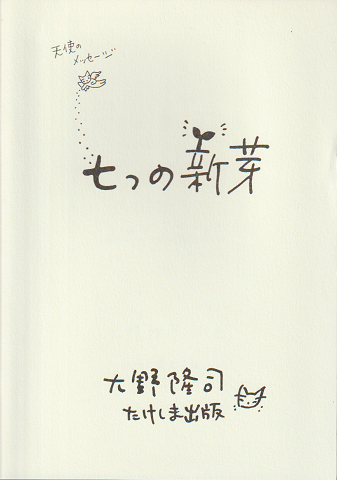 天使の
メッセージ
七つの新芽
大野隆司
たけしま出版